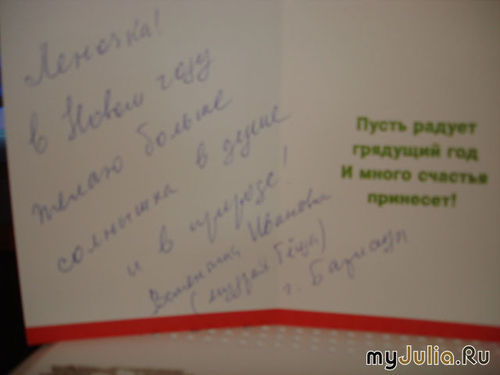 Леночка!
в Новом году
желаю больше
солнышка в душе
и в природе!
Валентина Ивановна
(мудрая Тёща)
г. Барнаул
Пусть радует
грядущий год
И много счастья
принесет!
myJulia.Ru